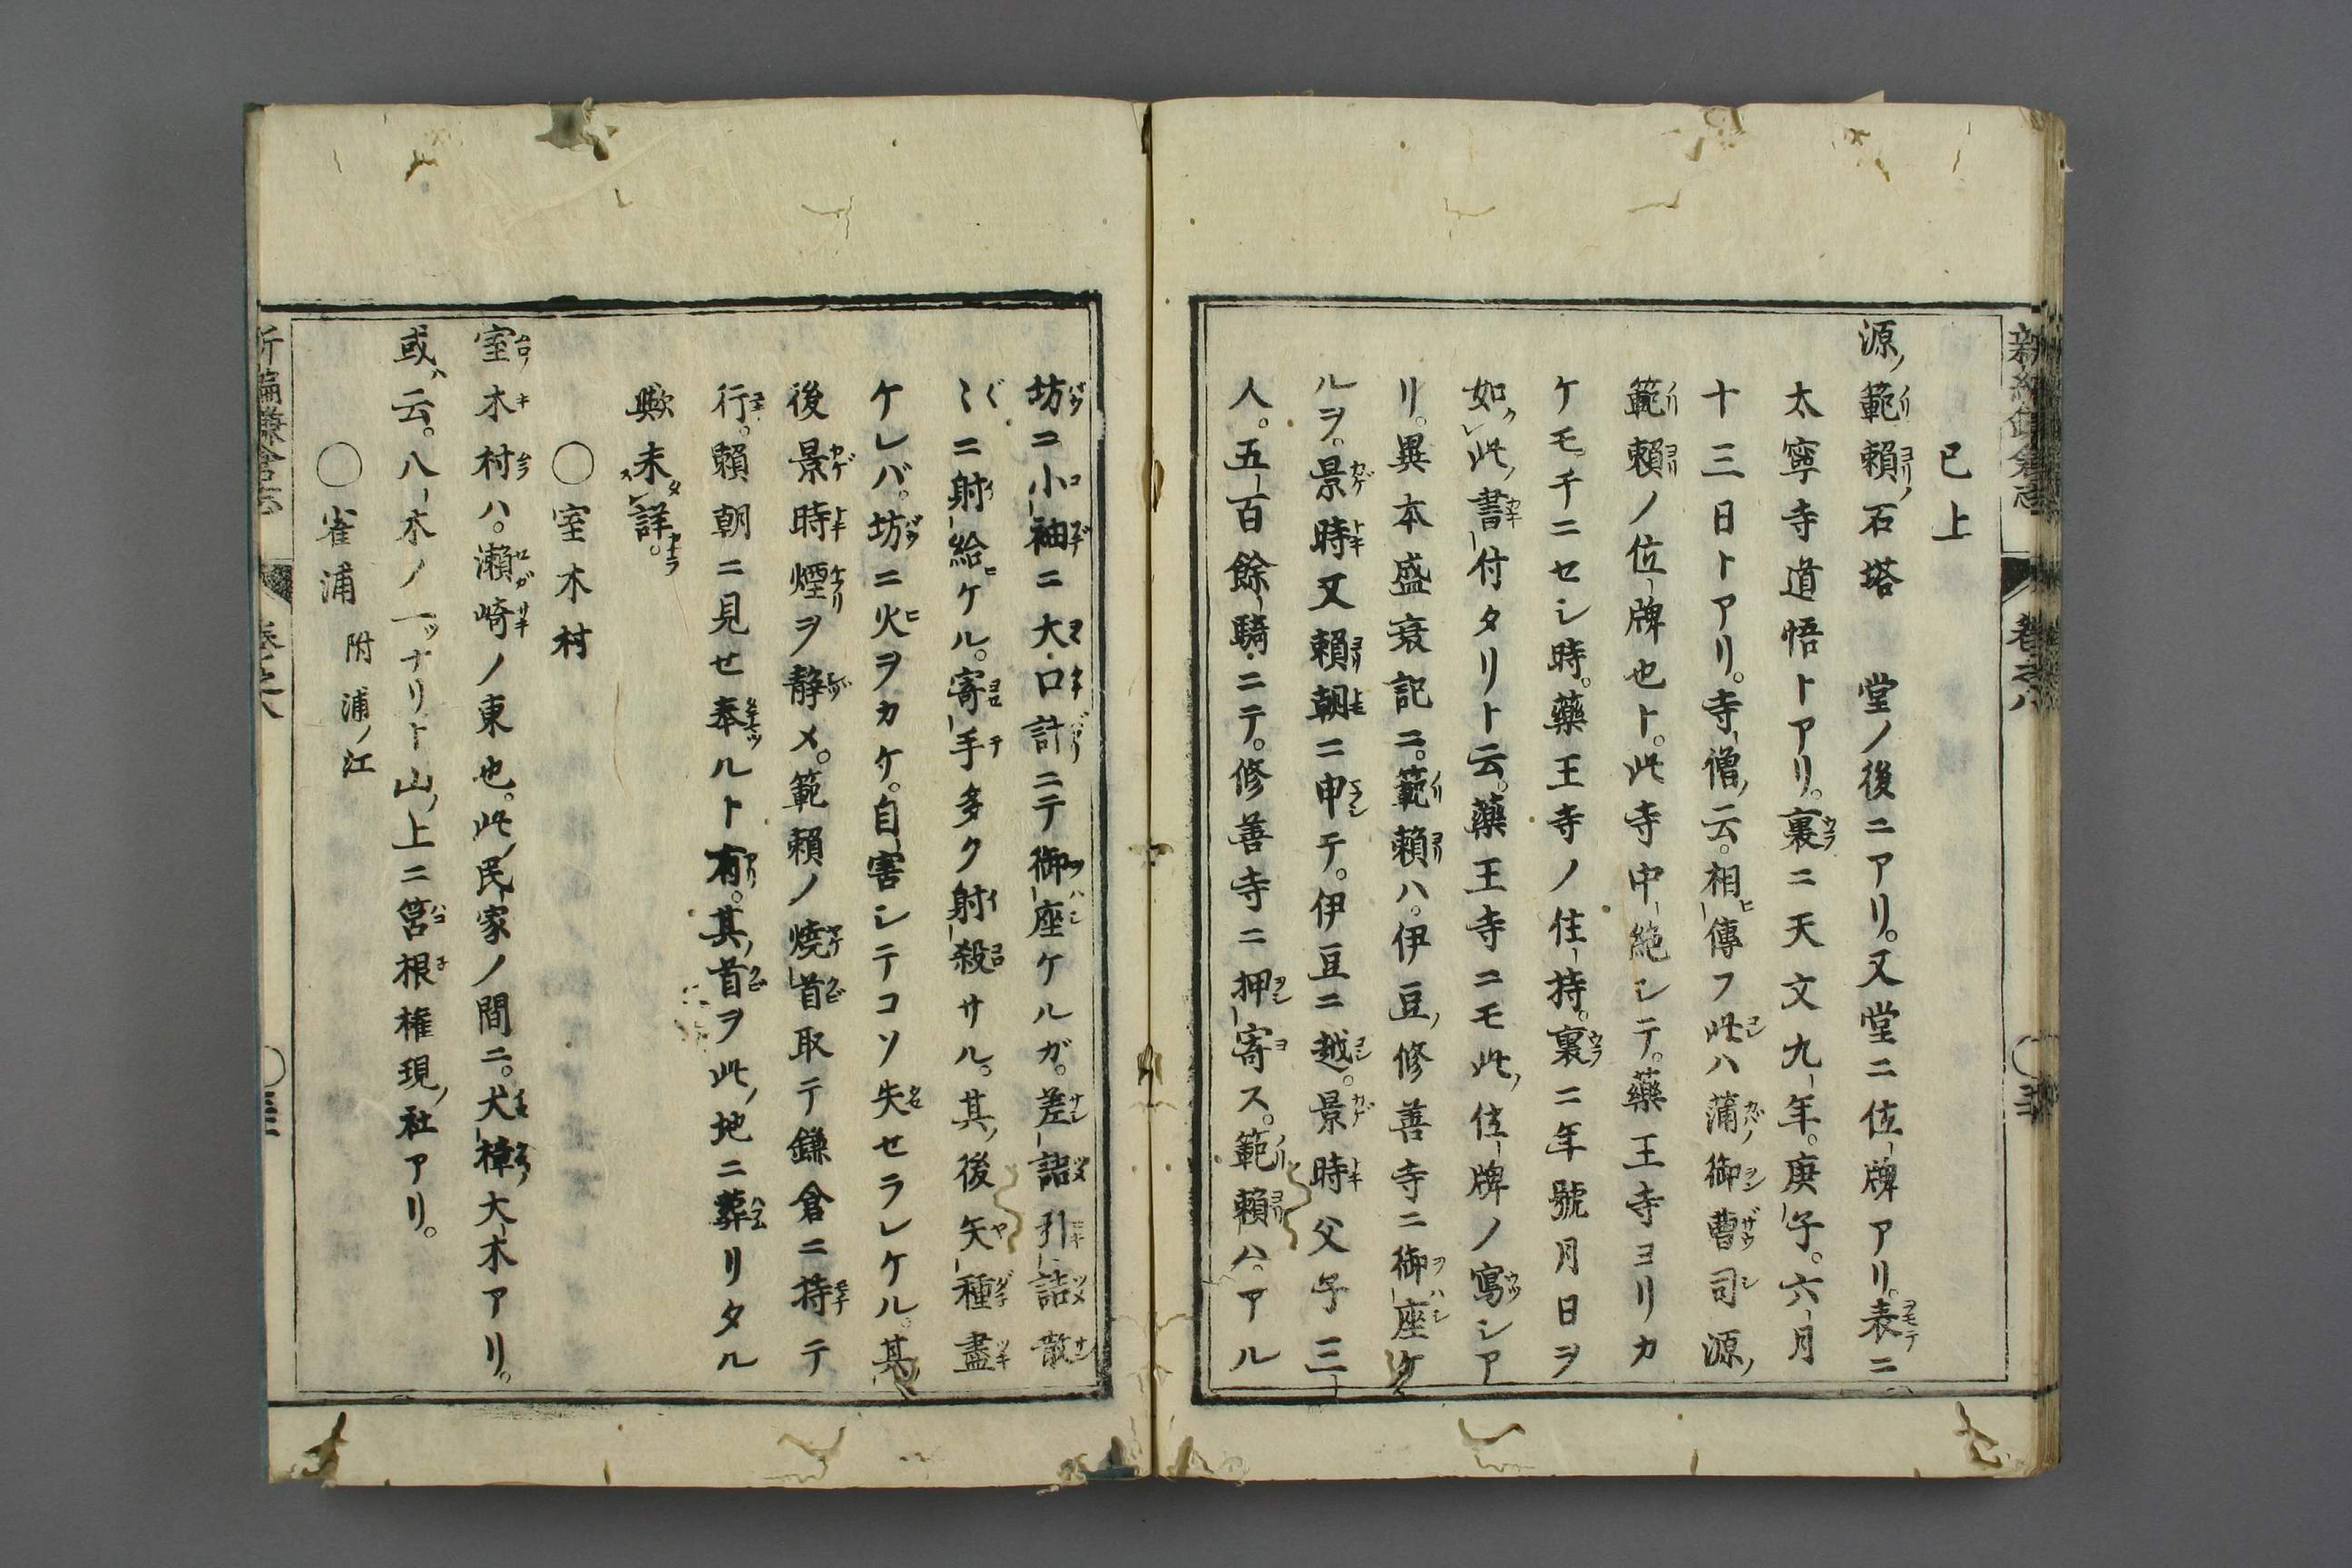 已上
源ノ範賴ノ石塔　堂ノ後ニアリ。又堂ニ位牌アリ。表ニ
太寧寺道悟トアリ。裏ニ天文九年。庚子。六月
十三日トアリ。寺僧ノ云。相傳フ此ハ蒲御曹司源ノ
範賴ノ位牌也ト。此寺中絶シテ。藥王寺ヨリカ
ケモチニセシ時。藥王寺ノ住持。裏ニ年號月日ヲ
如此ノ書付タリト云。藥王寺ニモ此ノ位牌ノ寫シア
リ。異本盛衰記ニ。範賴ハ。伊豆ノ修善寺ニ御座ケ
ルヲ。景時又賴朝ニ申テ。伊豆ニ越。景時父子三
人。五百餘騎ニテ。修善寺ニ押寄ス。範賴ハ。アル
坊ニ小袖ニ大口計ニテ御座ケルガ。差詰引詰散
〻ニ射給ケル。寄手多ク射殺サル。其ノ後矢種盡
ケレバ。坊ニ火ヲカケ。自害シテコソ失セラレケル。其
後景時煙ヲ静メ。範賴ノ燒首取テ鎌倉ニ持テ
行。賴朝ニ見セ奉ルト有。其ノ首ヲ此ノ地ニ葬リタル
歟未詳。
〇室木村
室木村ハ。瀬崎ノ東也。此ノ民家ノ間ニ。犬樟大木アリ。
或ハ云。八木ノ一ツナリト山ノ上ニ筥根権現ノ社アリ。
〇雀浦　附浦ノ江
新編鎌倉志　卷之八